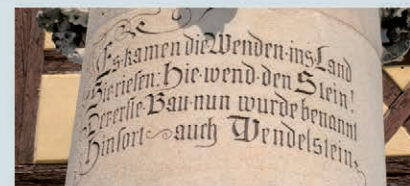 Es·kamen die Wenden·ins·Land
Sie riefen: hie·wend·den Stein!
Der erste·Bau·nun wurde benannt
Hinfort auch Wendelstein.